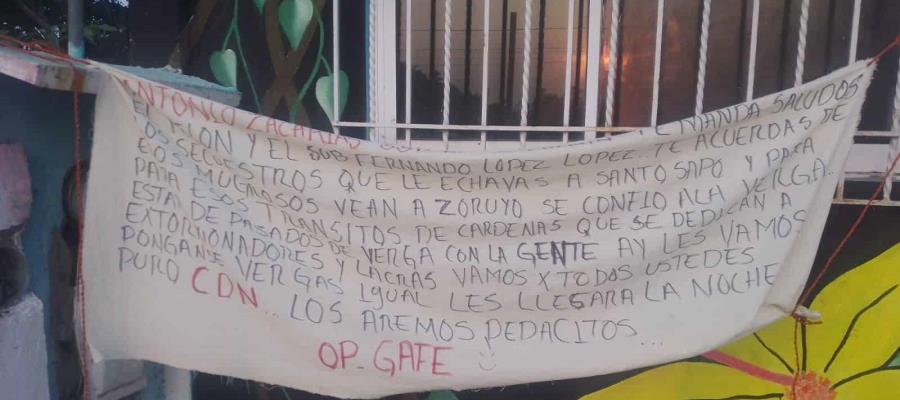 ANTONIO ZACARIAS TE MANDA SALUDOS
EL PION Y EL SUB FERNANDO LOPEZ LOPEZ.. TE ACUERDAS DE
LOS SECUESTROS QUE LE ECHAVAS A SANTO SAPO Y PARA
EOS MUGROSOS VEAN A ZORUYO SE CONFIO ALA VERGA..
PARA ESOS TRANSITOS DE CARDENAS QUE SE DEDICAN A
ESTAR DE PASADOS DE VERGA CON LA GENTE AY LES VAMOS
EXTORNONADORES Y LACRAS VAMOS X TODOS USTEDES
PONGANSE VERGAS IGUAL LES LLEGARA LA NOCHE
PURO CDN... LOS AREMOS PEDACITOS...
OP-GAFE